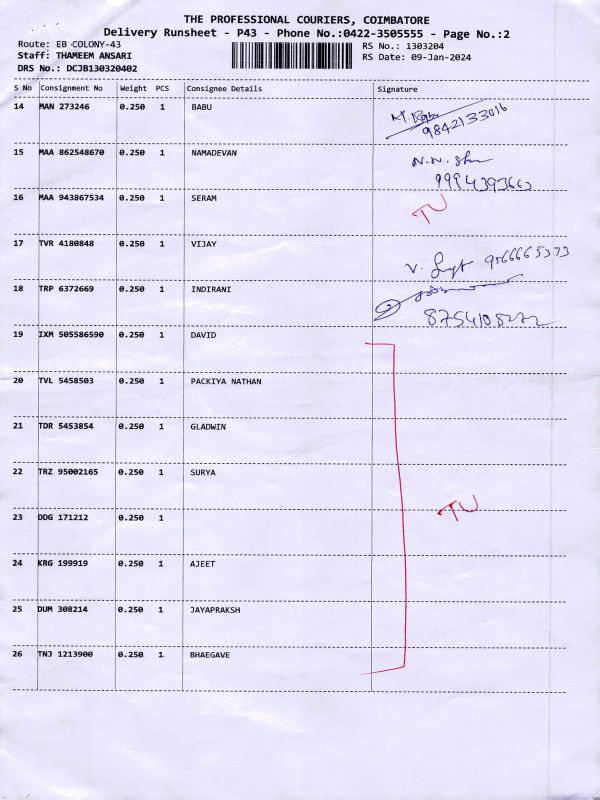 THE PROFESSIONAL COURIERS, COIMBATORE
Delivery Runsheet - P43 - Phone No.:0422-3505555 - Page No.:2
Route: EB COLONY-43 RS No.: 1303204
Staff: THAMEEM ANSARI RS Date: 09-Jan-2024
DRS No.: DCJB130320402
S No Consignment No Weight PCS Consignee Details Signature
14 MAN 273246 0.250 1 BABU
9842133016
15 MAA 862548670 0.250 1 NAMADEVAN N.N.
16 MAA 943867534 0.250 1 SERAM TU
17 TVR 4180848 0.250 1 VIJAY V. 9566665373
18 TRP 6372669 0.250 1 INDIRANI
19 IXM 505586590 0.250 1 DAVID
20 TVL 5458503 0.250 1 PACKIYA NATHAN
21 TDR 5453854 0.250 1 GLADWIN
22 TRZ 95002165 0.250 1 SURYA
TU
23 DDG 171212 0.250 1
24 KRG 199919 0.250 1 AJEET
25 DUM 308214 0.250 1 JAYAPRAKSH
26 TNJ 1213900 0.250 1 BHAEGAVE